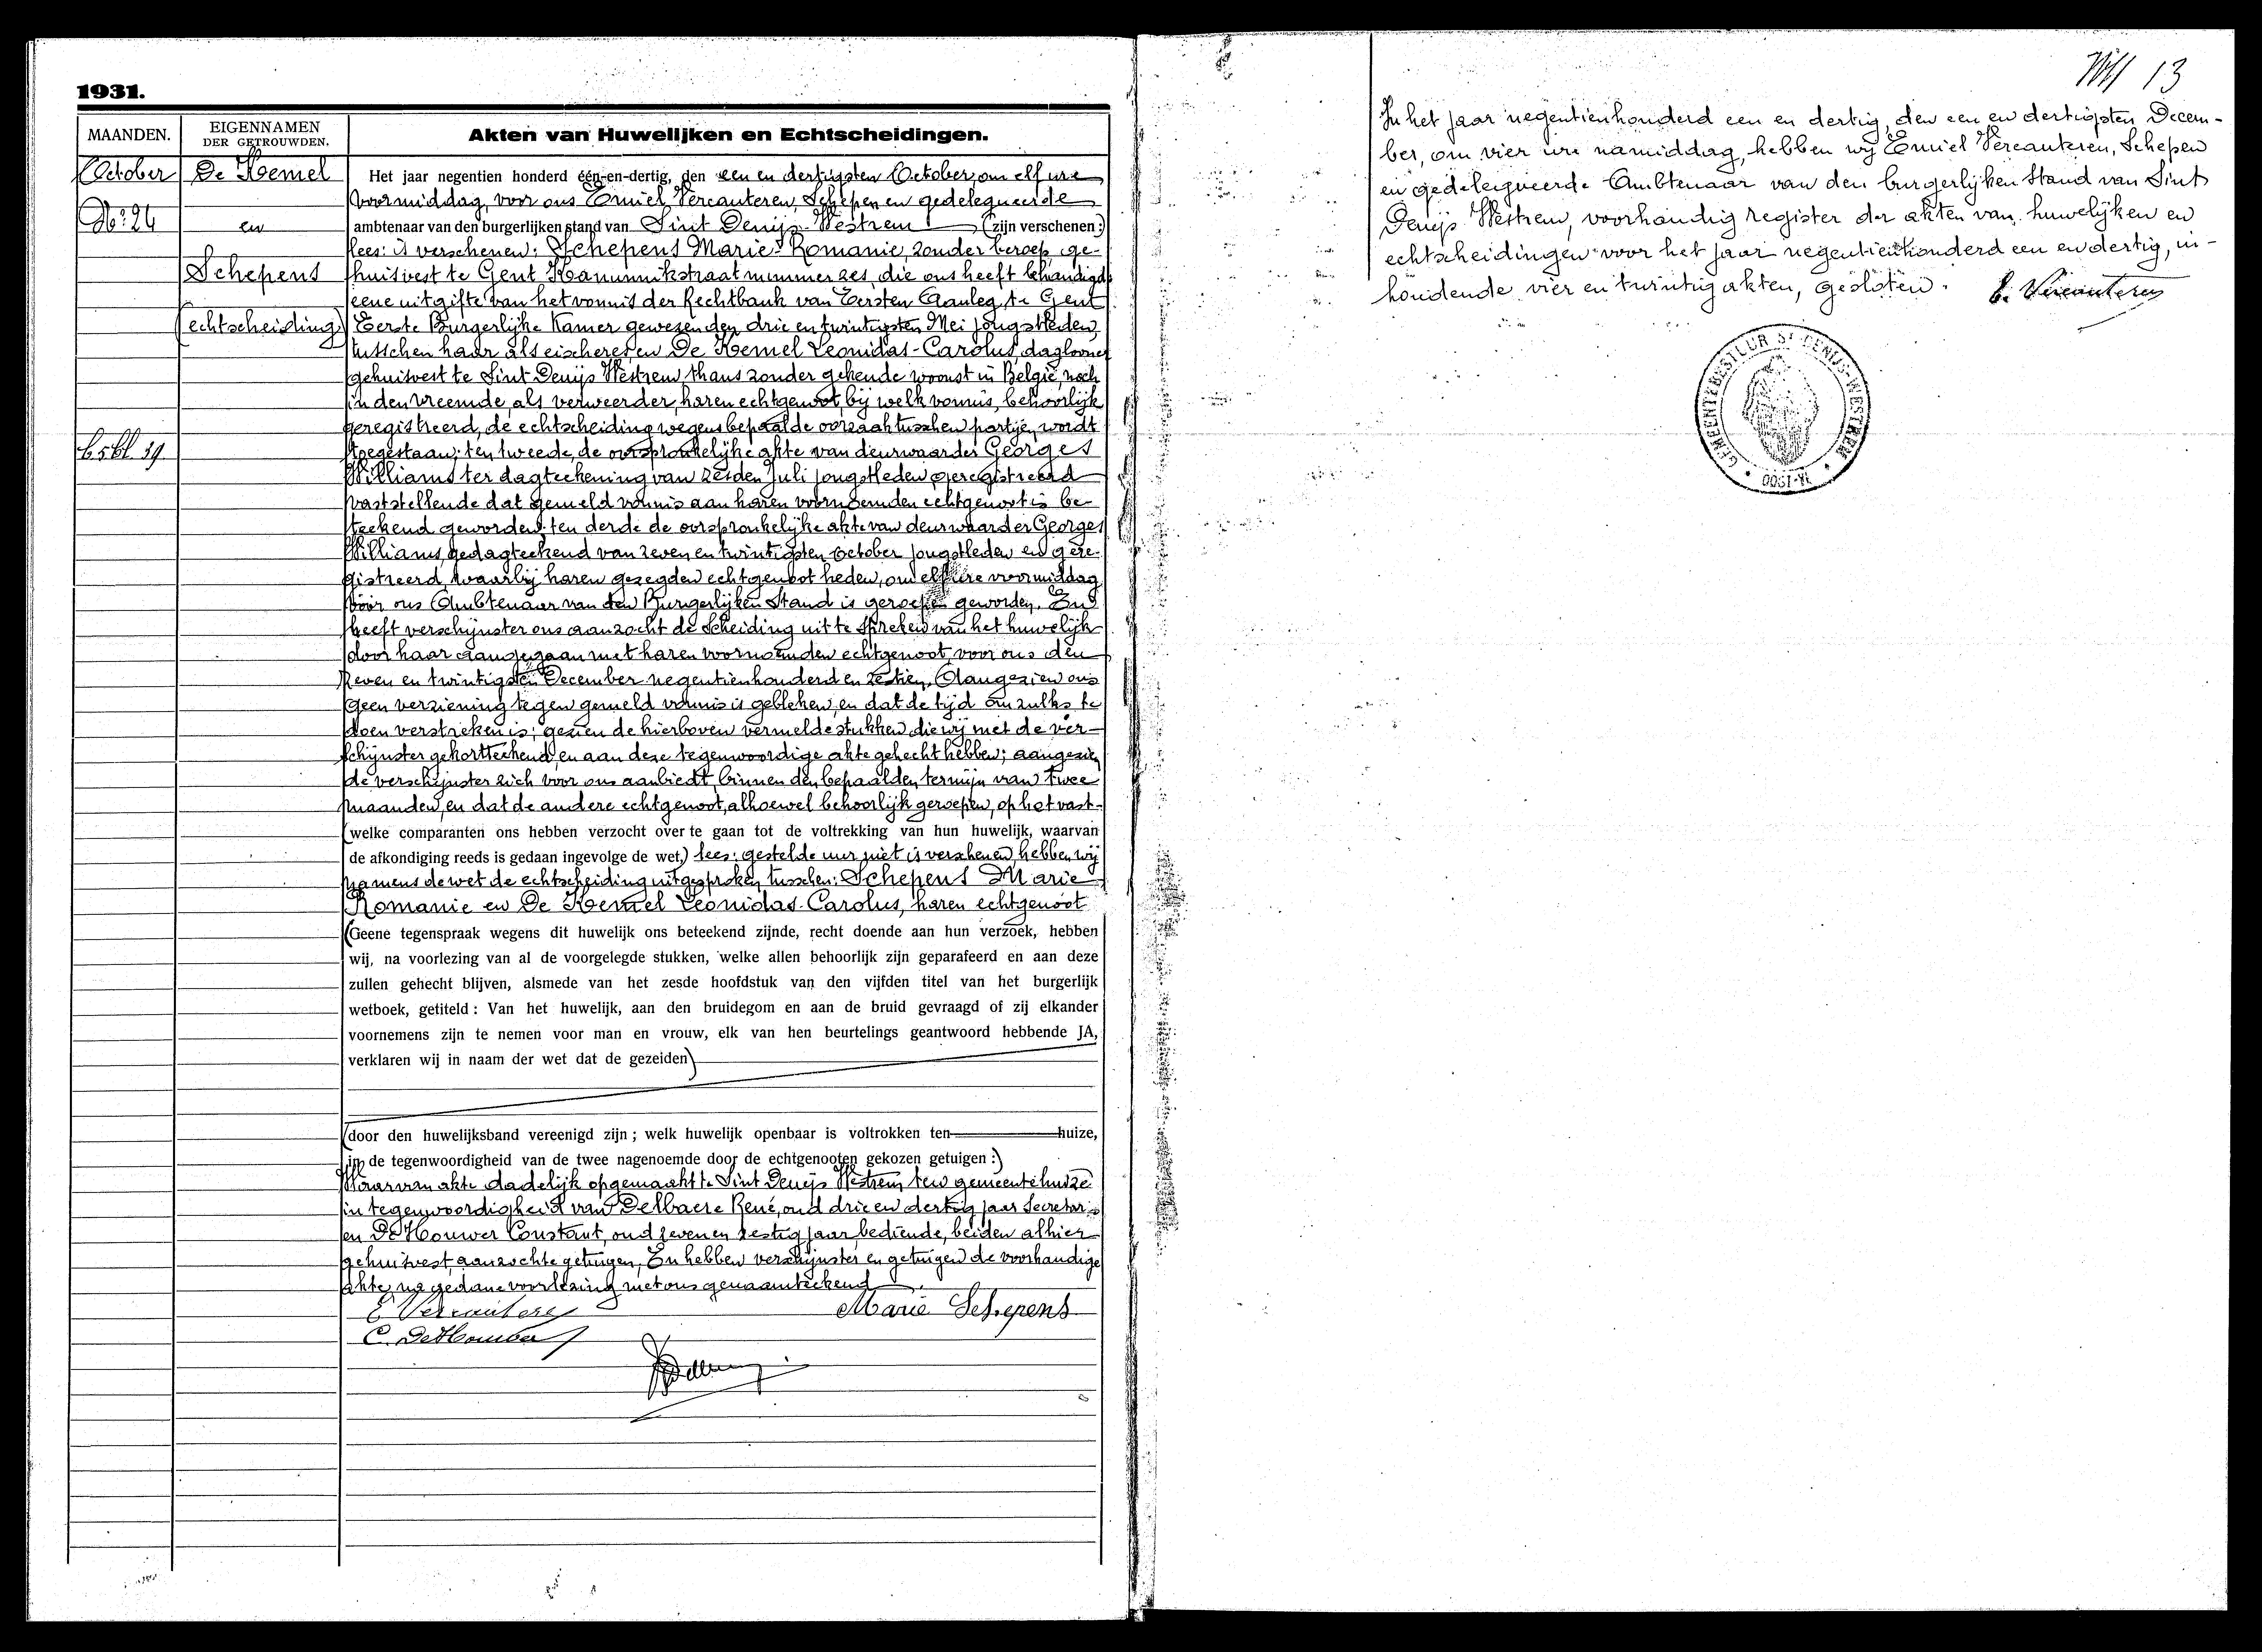 1931.
MAANDEN.
EIGENNAMEN
DER GETROUWDEN.
Akten van Huwelijken en Echtscheidingen.
October
De Kemel
No: 24
en
Schepens
(echtscheiding)
Het jaar negentien honderd één-en-dertig, den een en dertigsten October, om elf ure
voormiddag, voor ons Emiel Vercauteren, Schepen en gedelegueerde
ambtenaar van den burgerlijken stand van Sint Denijs-Westrem (zijn verschenen:)
lees: is verschenen: Schepens Marie-Romanie, zonder beroep, ge-
huisvest te Gent Kanunnikstraat nummer zes, die ons heeft behandigd
eene uitgifte van het vonnis der Rechtbank van Eersten Aanleg te Gent
Eerste Burgerlijke Kamer gewezen den drie en twintigsten Mei jongstleden,
tusschen haar als eischeres en De Kemel Leonidas-Carolus, daglooner
gehuisvest te Sint Denijs Westrem, thans zonder gekende woonst in België, noch
in den vreemde, als verweerder, haren echtgenoot, bij welk vonnis, behoorlijk
geregistreerd, de echtscheiding wegens bepaalde oorzaak tusschen partijen, wordt
toegestaan; ten tweede, de oorspronkelijke akte van deurwaarder Georges
Williams ter dagteekening van zesden Juli jongstleden geregistreerd
vaststellende dat gemeld vonnis aan haren voornoemden echtgenoot is be-
teekend geworden; ten derde de oorspronkelijke akte van deurwaarder Georges
Williams, gedagteekend van zeven en twintigsten October jongstleden en gere-
gistreerd, waarbij haren gezegden echtgenoot heden, om elf ure voormiddag
vóór ons Ambtenaar van den Burgerlijken Stand is geroepen geworden. En
heeft verschijnster ons aanzocht de scheiding uit te spreken van het huwelijk
door haar aangegaan met haren voornoemden echtgenoot, voor ons den
zeven en twintigsten December negentienhonderd en zestien. Aangezien ons
geen verziening tegen gemeld vonnis is gebleken, en dat de tijd om zulks te
doen verstreken is; gezien de hierboven vermelde stukken die wij met de ver-
schijnster gekortteekend, en aan deze tegenwoordige akte gehecht hebben; aangezien
de verschijnster zich voor ons aanbiedt, binnen den bepaalden termijn van twee
maanden, en dat de andere echtgenoot, alhoewel behoorlijk geroepen, op het vast-
(welke comparanten ons hebben verzocht over te gaan tot de voltrekking van hun huwelijk, waarvan
de afkondiging reeds is gedaan ingevolge de wet,) lees: gestelde uur niet is verschenen, hebben wij
namens de wet de echtscheiding uitgesproken tusschen: Schepens Marie
Romanie en De Kemel Leonidas-Carolus, haren echtgenoot
(Geene tegenspraak wegens dit huwelijk ons beteekend zijnde, recht doende aan hun verzoek, hebben
wij, na voorlezing van al de voorgelegde stukken, welke allen behoorlijk zijn geparafeerd en aan deze
zullen gehecht blijven, alsmede van het zesde hoofdstuk van den vijfden titel van het burgerlijk
wetboek, getiteld: Van het huwelijk, aan den bruidegom en aan de bruid gevraagd of zij elkander
voornemens zijn te nemen voor man en vrouw, elk van hen beurtelings geantwoord hebbende JA,
verklaren wij in naam der wet dat de gezeiden)
(door den huwelijksband vereenigd zijn; welk huwelijk openbaar is voltrokken ten huize,
in de tegenwoordigheid van de twee nagenoemde door de echtgenooten gekozen getuigen:)
Waarvan akte dadelijk opgemaakt te Sint Denijs Westrem ten gemeentehuize
in tegenwoordigheid van Delbaere René, oud drie en dertig jaar Secretaris
en De Houwer Constant, oud zeven en zestig jaar, bediende, beiden alhier
gehuisvest, aanzochte getuigen. En hebben verschijnster en getuigen de voorhandige
akte, na gedane voorlezing met ons genaamteekend
E. Vercauteren
Marie Schepens
C. DeHouwer
13
In het jaar negentienhonderd een en dertig, den een en dertigsten Decem-
ber, om vier ure namiddag, hebben wij Emiel Vercauteren, Schepen
en gedelegueerde Ambtenaar van den burgerlijken Stand van Sint
Denijs Westrem, voorhandig register der akten van huwelijken en
echtscheidingen voor het jaar negentienhonderd een en dertig, in-
houdende vier en twintig akten, gesloten.
E. Vercauteren
GEMEENTEBESTUUR ST DENIJS-WESTREM